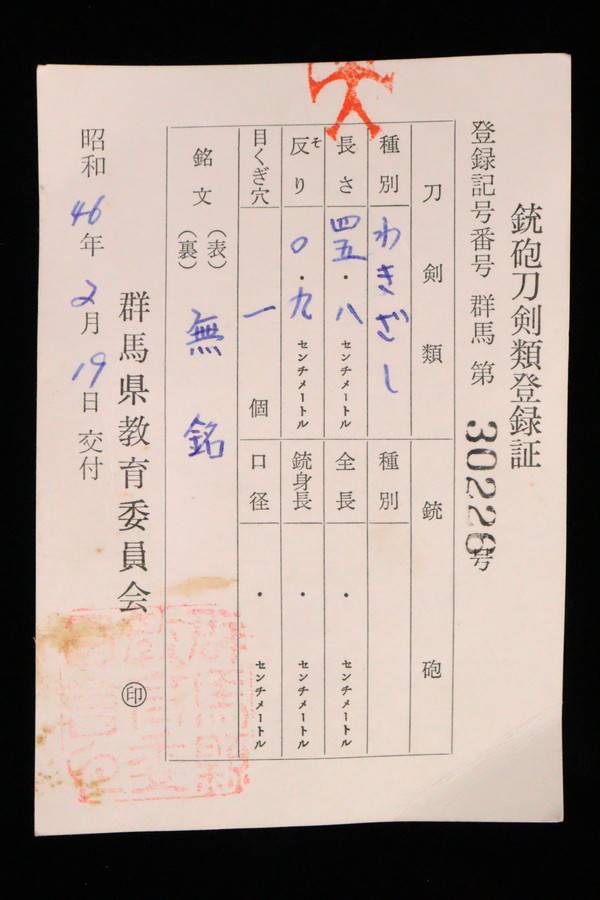 銃砲刀剣類登録証
登録記号番号 群馬 第 30226号
刀剣類
銃砲
種別 わきざし
種別
長さ 四五・八センチメートル
全長 ・ センチメートル
反り 〇・九センチメートル
そ
銃身長 ・ センチメートル
目くぎ穴 一 個
口径 ・ センチメートル
銘文 (表) (裏) 無銘
群馬県教育委員会 ㊞
昭和46年2月19日 交付